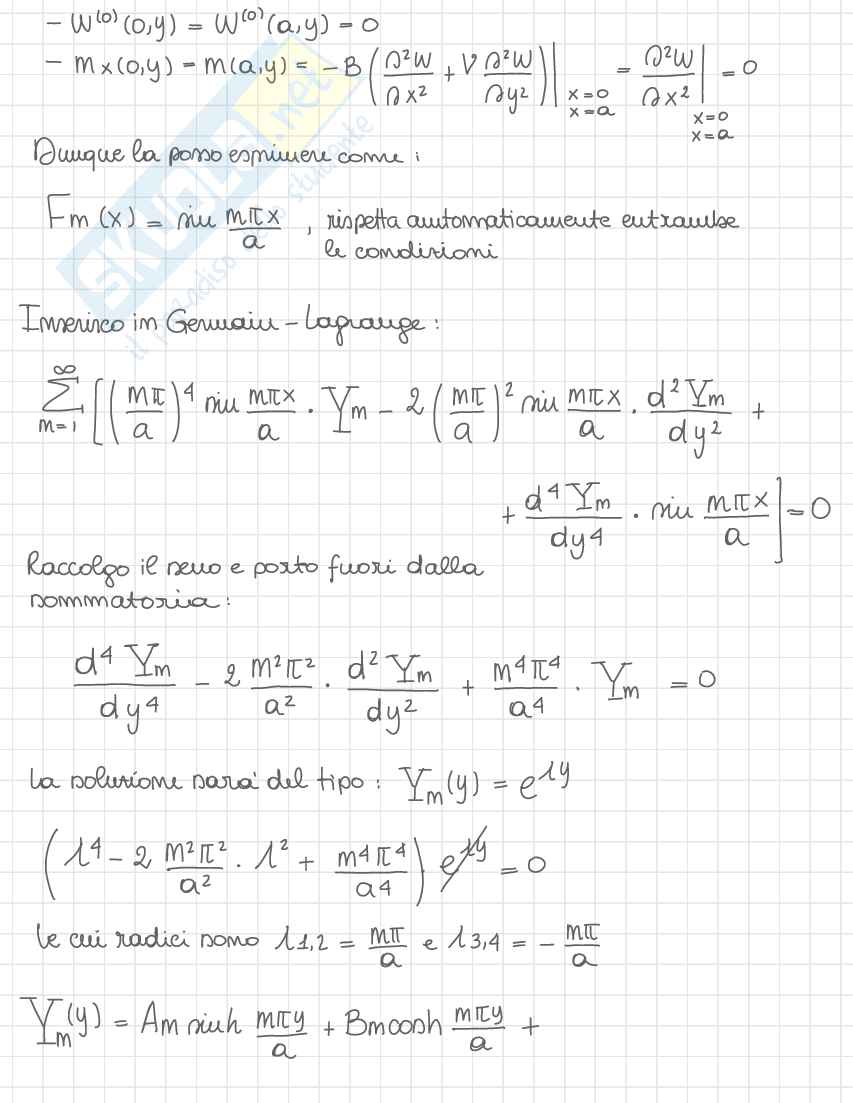 - W⁽⁰⁾(0,y) = W⁽⁰⁾(a,y) = 0
- mx(0,y) = m(a,y) = -B (∂²W/∂x² + ν ∂²W/∂y²)|x=0 x=a = ∂²W/∂x²|x=0 x=a = 0
Dunque la posso esprimere come:
Fm(x) = sin mπx/a , rispetta automaticamente entrambe
le condizioni
Inserisco in Germain-Lagrange:
∑m=1^∞ [(mπ/a)⁴ sin mπx/a · Ym - 2 (mπ/a)² sin mπx/a · d²Ym/dy² +
+ d⁴Ym/dy⁴ · sin mπx/a] = 0
Raccolgo il seno e porto fuori dalla
sommatoria:
d⁴Ym/dy⁴ - 2 m²π²/a² · d²Ym/dy² + m⁴π⁴/a⁴ · Ym = 0
La soluzione sarà del tipo: Ym(y) = e^λy
(λ⁴ - 2 m²π²/a² · λ² + m⁴π⁴/a⁴) e^λy = 0
le cui radici sono λ1,2 = mπ/a e λ3,4 = - mπ/a
Ym(y) = Am sinh mπy/a + Bm cosh mπy/a +
SKUOLA.net
il paradiso dello studente